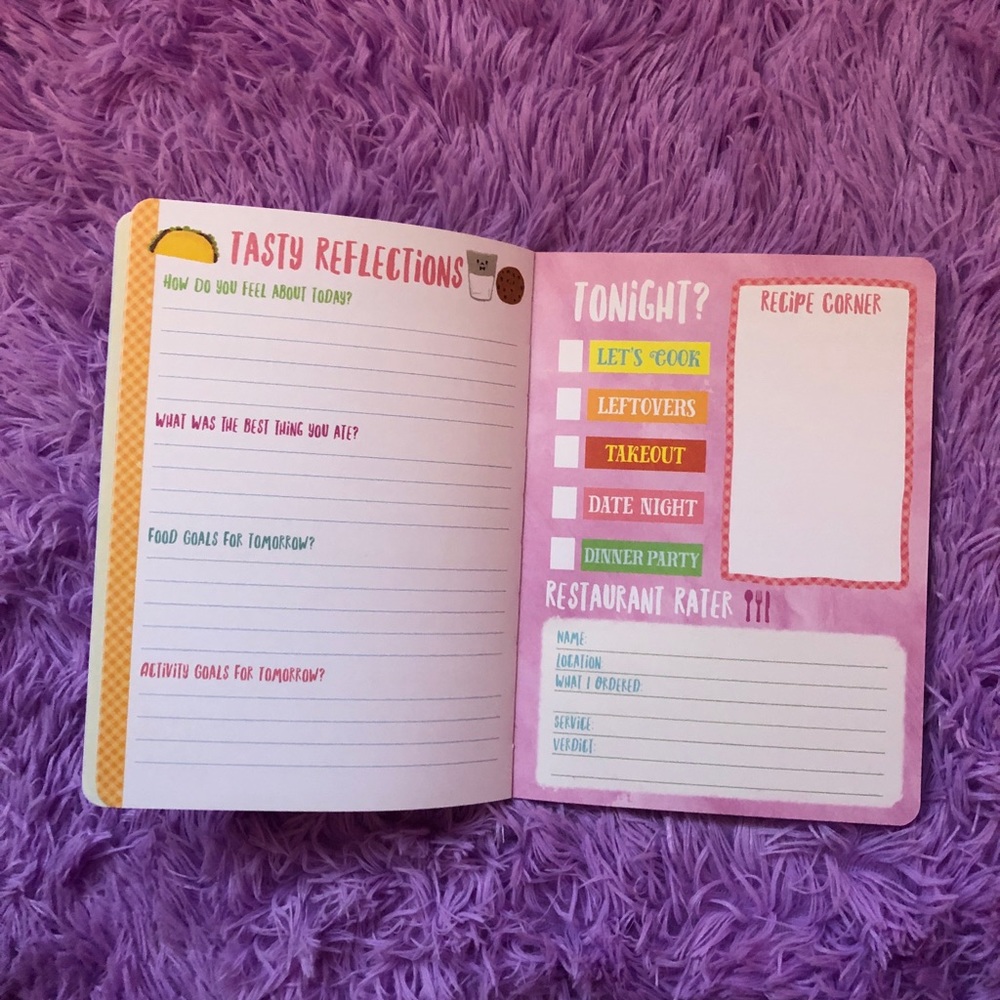 TASTY REFLECTIONS
HOW DO YOU FEEL ABOUT TODAY?
WHAT WAS THE BEST THING YOU ATE?
FOOD GOALS FOR TOMORROW?
ACTIVITY GOALS FOR TOMORROW?
TONIGHT?
LET'S COOK
LEFTOVERS
TAKEOUT
DATE NIGHT
DINNER PARTY
RECIPE CORNER
RESTAURANT RATER
NAME:
LOCATION:
WHAT I ORDERED:
SERVICE:
VERDICT: